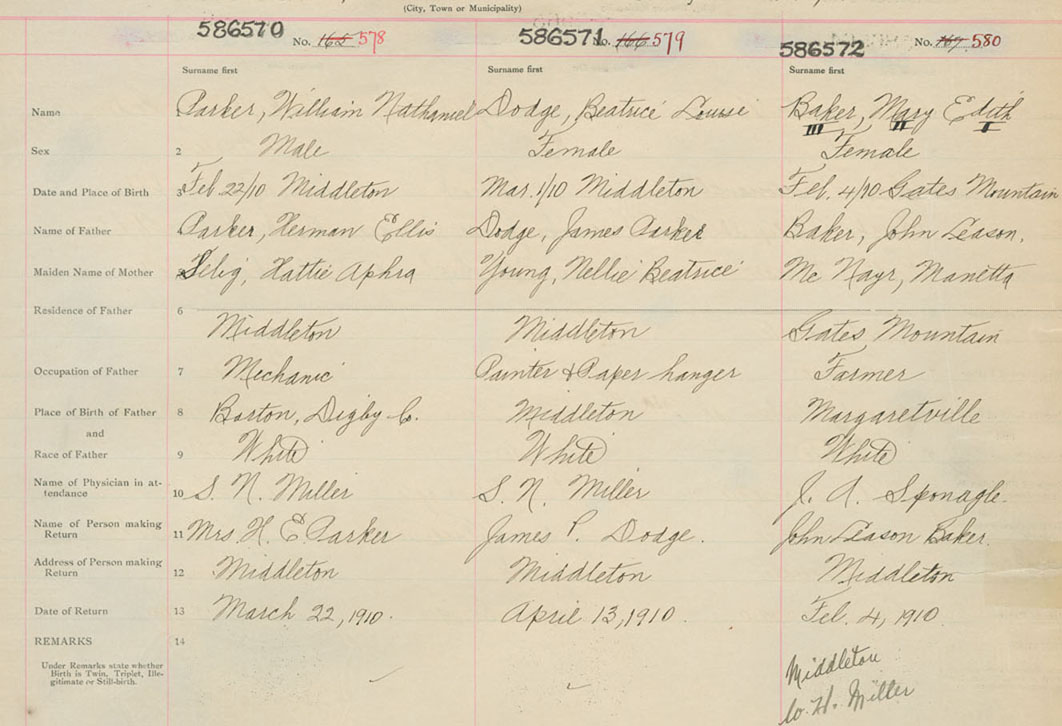 (City, Town or Municipality)
586570 No. 165 578 586571 No. 166 579 586572 No. 167 580
Surname first Surname first Surname first
Name Parker, William Nathaniel Dodge, Beatrice Louise Baker, Mary Edith
III II I
Sex 2 Male Female Female
Date and Place of Birth 3 Feb 22/10 Middleton Mar. 1/10 Middleton Feb. 4/10 Gates Mountain
Name of Father Parker, Herman Ellis Dodge, James Parker Baker, John Leason,
Maiden Name of Mother Selig, Hattie Aphra Young, Nellie Beatrice Mc Nayr, Manetta
Residence of Father 6 Middleton Middleton Gates Mountain
Occupation of Father 7 Mechanic Painter & Paper hanger Farmer
Place of Birth of Father 8 Barton, Digby Co. Middleton Margaretville
and
Race of Father 9 White White White
Name of Physician in at-
tendance 10 S. N. Miller S. N. Miller J. A. Sponagle.
Name of Person making
Return 11 Mrs. H. E. Parker James P. Dodge. John Leason Baker.
Address of Person making
Return 12 Middleton Middleton Middleton
Date of Return 13 March 22, 1910. April 13, 1910 Feb. 4, 1910.
REMARKS 14
Under Remarks state whether
Birth is Twin, Triplet, Ille-
gitimate or Still-birth.
Middleton
W. H. Miller